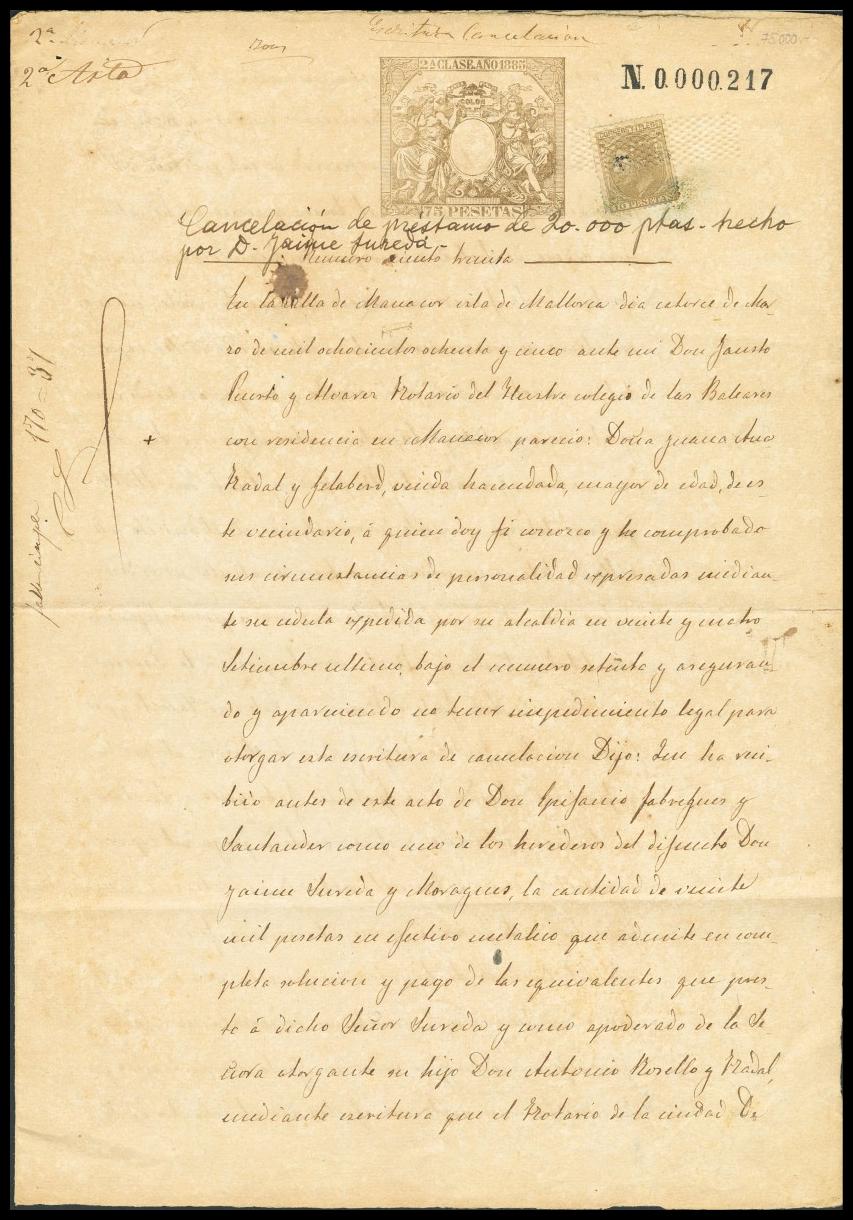 2ª
Escritura Cancelación
75000.-
2ª Arta
2ª CLASE. AÑO 1885
COLON
75 PESETAS
N. 0.000.217
10 PESETAS
Cancelación de préstamo de 20.000 ptas. hecho
por D. Jaime Sureda.-
Numero ciento treinta
En la villa de Manacor isla de Mallorca dia catorce de Mar-
zo de mil ochocientos ochenta y cinco ante mi Don Fausto
Puerto y Alvarez Notario del Ilustre colegio de las Baleares
con residencia en Manacor parecio: Doña Juana Ana
Nadal y Gelaberd, viuda hacendada, mayor de edad, de es-
te vecindario, á quien doy fé conozco y he comprobado
sus circunstancias de personalidad expresadas median-
te su cedula expedida por su alcaldia en veinte y cuatro
Setiembre ultimo, bajo el numero setenta y aseguran-
do y apareciendo no tener impedimiento legal para
otorgar esta escritura de cancelacion Dijo: Que ha reci-
bido antes de este acto de Don Epifanio Fabregues y
Santander como uno de los herederos del difunto Don
Jaime Sureda y Moragues, la cantidad de veinte
mil pesetas en efectivo metalico que admite en com-
pleta solucion y pago de las equivalentes que pres-
tó á dicho Señor Sureda y como apoderado de la Se-
ñora otorgante su hijo Don Antonio Rosello y Nadal,
mediante escritura que el Notario de la ciudad De
170=37